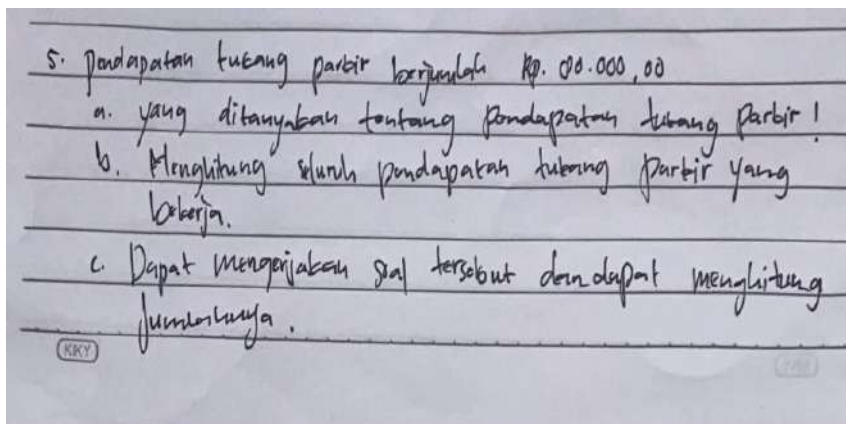 5. Pendapatan tukang parkir berjumlah Rp. 00.000,00
a. yang ditanyakan tentang pendapatan tukang parkir!
b. Menghitung seluruh pendapatan tukang parkir yang
bekerja.
c. Dapat mengerjakan soal tersebut dan dapat menghitung
jumlahnya.
KKY